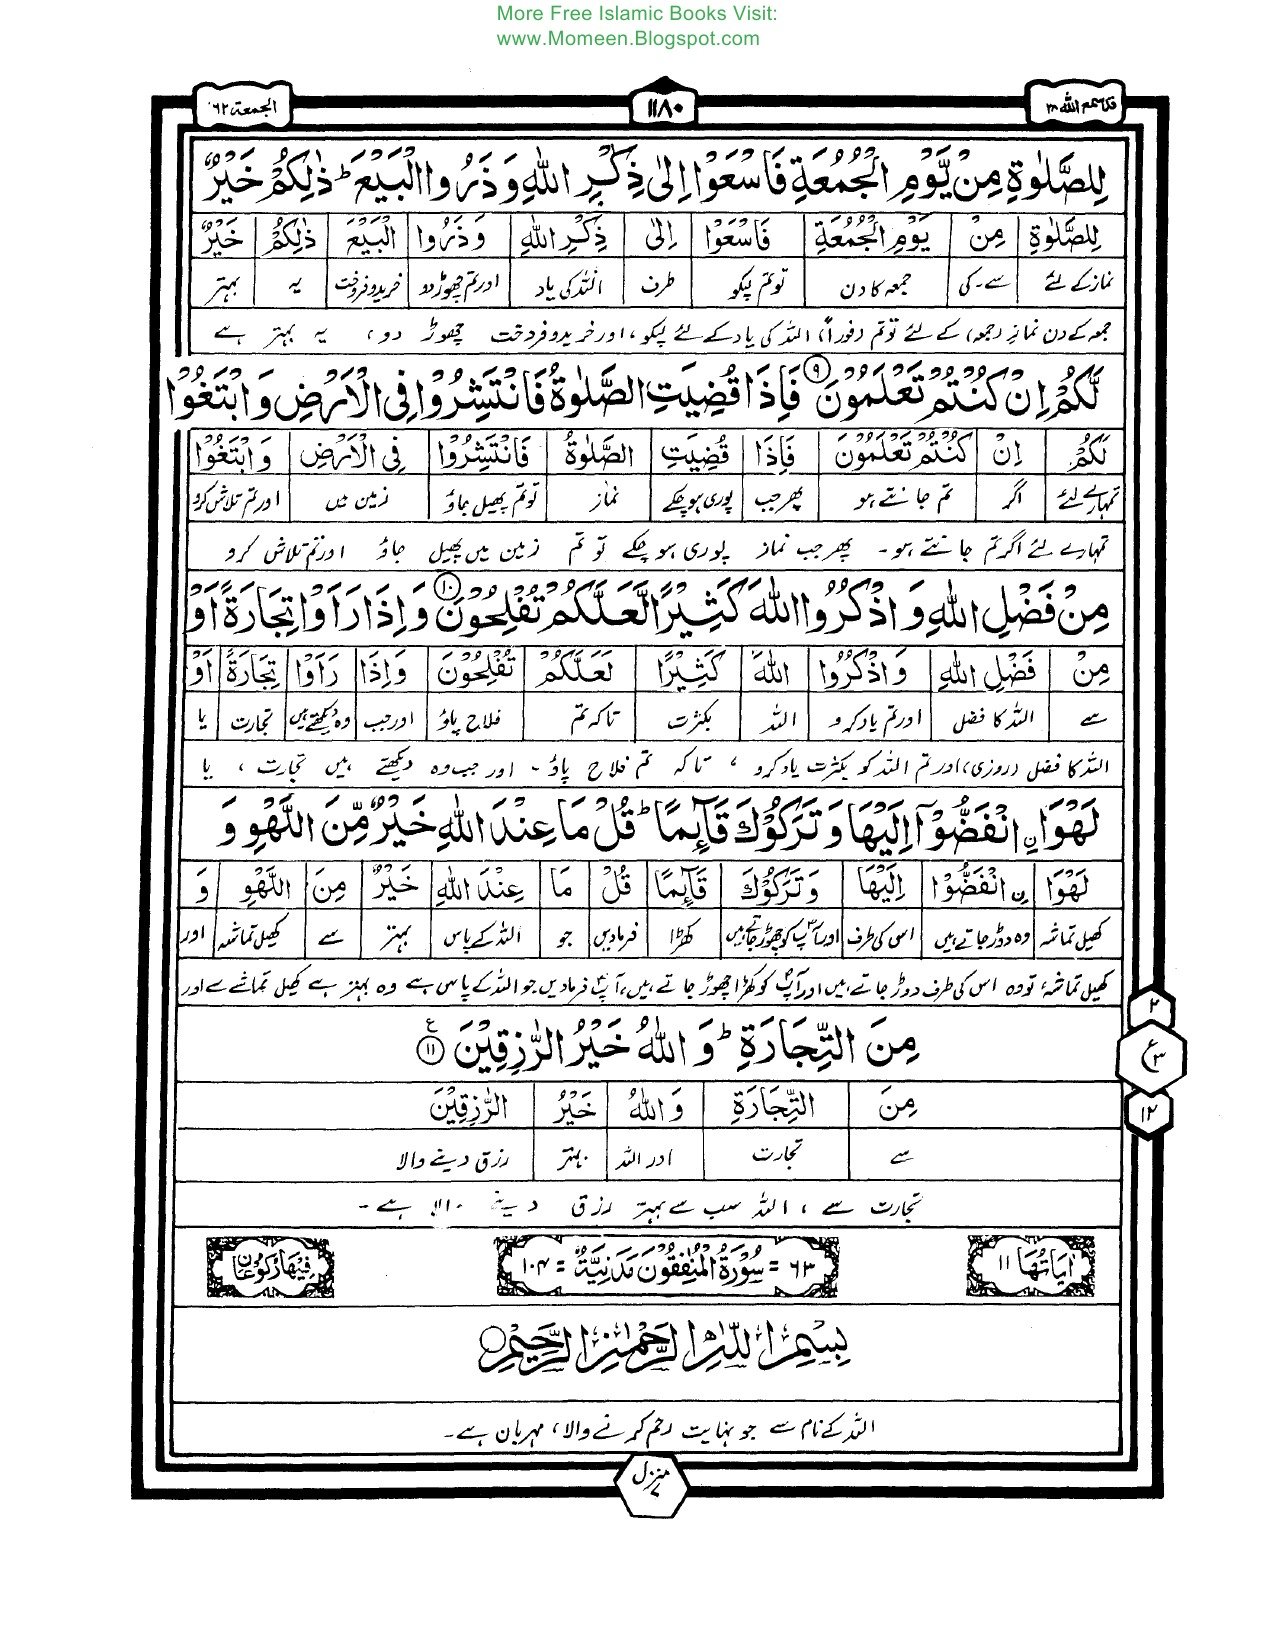 More Free Islamic Books Visit:
www.Momeen.Blogspot.com
قد سمع الله ٢٨ ١١٨٠ الجمعة ٦٢
لِلصَّلٰوةِ مِنْ يَّوْمِ الْجُمُعَةِ فَاسْعَوْا اِلٰى ذِكْرِ اللّٰهِ وَ ذَرُوا الْبَيْعَ ؕ ذٰلِكُمْ خَيْرٌ
لِلصَّلٰوةِ مِنْ يَوْمِ الْجُمُعَةِ فَاسْعَوْا اِلٰى ذِكْرِ اللّٰهِ وَ ذَرُوا الْبَيْعَ ذٰلِكُمْ خَيْرٌ
نماز کے لئے سے ۔ کی جمعہ کا دن تو تم لپکو طرف اللہ کی یاد اور تم چھوڑ دو خرید و فروخت یہ بہتر
جمعہ کے دن نماز (جمعہ) کے لئے تو تم (فوراً) اللہ کی یاد کے لئے لپکو ، اور خرید و فروخت چھوڑ دو ، یہ بہتر ہے
لَّكُمْ اِنْ كُنْتُمْ تَعْلَمُوْنَ ۹ فَاِذَا قُضِيَتِ الصَّلٰوةُ فَانْتَشِرُوْا فِى الْاَرْضِ وَ ابْتَغُوْا
لَكُمْ اِنْ كُنْتُمْ تَعْلَمُوْنَ فَاِذَا قُضِيَتِ الصَّلٰوةُ فَانْتَشِرُوْا فِى الْاَرْضِ وَ ابْتَغُوْا
تمہارے لئے اگر تم جانتے ہو پھر جب پوری ہو چکے نماز تو تم پھیل جاؤ زمین میں اور تم تلاش کرو
تمہارے لئے اگر تم جانتے ہو ۔ پھر جب نماز پوری ہو چکے تو تم زمین میں پھیل جاؤ اور تم تلاش کرو
مِنْ فَضْلِ اللّٰهِ وَ اذْكُرُوا اللّٰهَ كَثِيْرًا لَّعَلَّكُمْ تُفْلِحُوْنَ ۱۰ وَ اِذَا رَاَوْا تِجَارَةً اَوْ
مِنْ فَضْلِ اللّٰهِ وَ اذْكُرُوا اللّٰهَ كَثِيْرًا لَعَلَّكُمْ تُفْلِحُوْنَ وَ اِذَا رَاَوْا تِجَارَةً اَوْ
سے اللہ کا فضل اور تم یاد کرو اللہ بکثرت تاکہ تم فلاح پاؤ اور جب وہ دیکھتے ہیں تجارت یا
اللہ کا فضل (روزی) اور تم اللہ کو بکثرت یاد کرو ، تاکہ تم فلاح پاؤ ۔ اور جب وہ دیکھتے ہیں تجارت ، یا
لَهْوَا ۨانْفَضُّوْۤا اِلَيْهَا وَ تَرَكُوْكَ قَآئِمًا ؕ قُلْ مَا عِنْدَ اللّٰهِ خَيْرٌ مِّنَ اللَّهْوِ وَ
لَهْوَا ۨانْفَضُّوْا اِلَيْهَا وَ تَرَكُوْكَ قَآئِمًا قُلْ مَا عِنْدَ اللّٰهِ خَيْرٌ مِنَ اللَّهْوِ وَ
کھیل تماشہ وہ دوڑ جاتے ہیں اس کی طرف اور آپؐ کو چھوڑ جاتے ہیں کھڑا فرمادیں جو اللہ کے پاس بہتر سے کھیل تماشہ اور
کھیل تماشہ تو وہ اس کی طرف دوڑ جاتے ہیں اور آپؐ کو کھڑا چھوڑ جاتے ہیں ، آپؐ فرمادیں جو اللہ کے پاس ہے وہ بہتر ہے کھیل تماشے سے اور
مِنَ التِّجَارَةِ ؕ وَ اللّٰهُ خَيْرُ الرّٰزِقِيْنَ ۱۱ ع
مِنَ التِّجَارَةِ وَ اللّٰهُ خَيْرُ الرّٰزِقِيْنَ
سے تجارت اور اللہ بہتر رزق دینے والا
تجارت سے ، اللہ سب سے بہتر رزق دینے والا ہے ۔
٢
ع ٣
١٢
اٰيَاتُهَا ١١ ٦٣ = سُوْرَةُ الْمُنٰفِقُوْنَ مَدَنِيَّةٌ = ١٠٤ فِيْهَا رُكُوْعَانِ
بِسْمِ اللّٰهِ الرَّحْمٰنِ الرَّحِيْمِ
اللہ کے نام سے جو نہایت رحم کرنے والا ، مہربان ہے ۔
منزل ٧